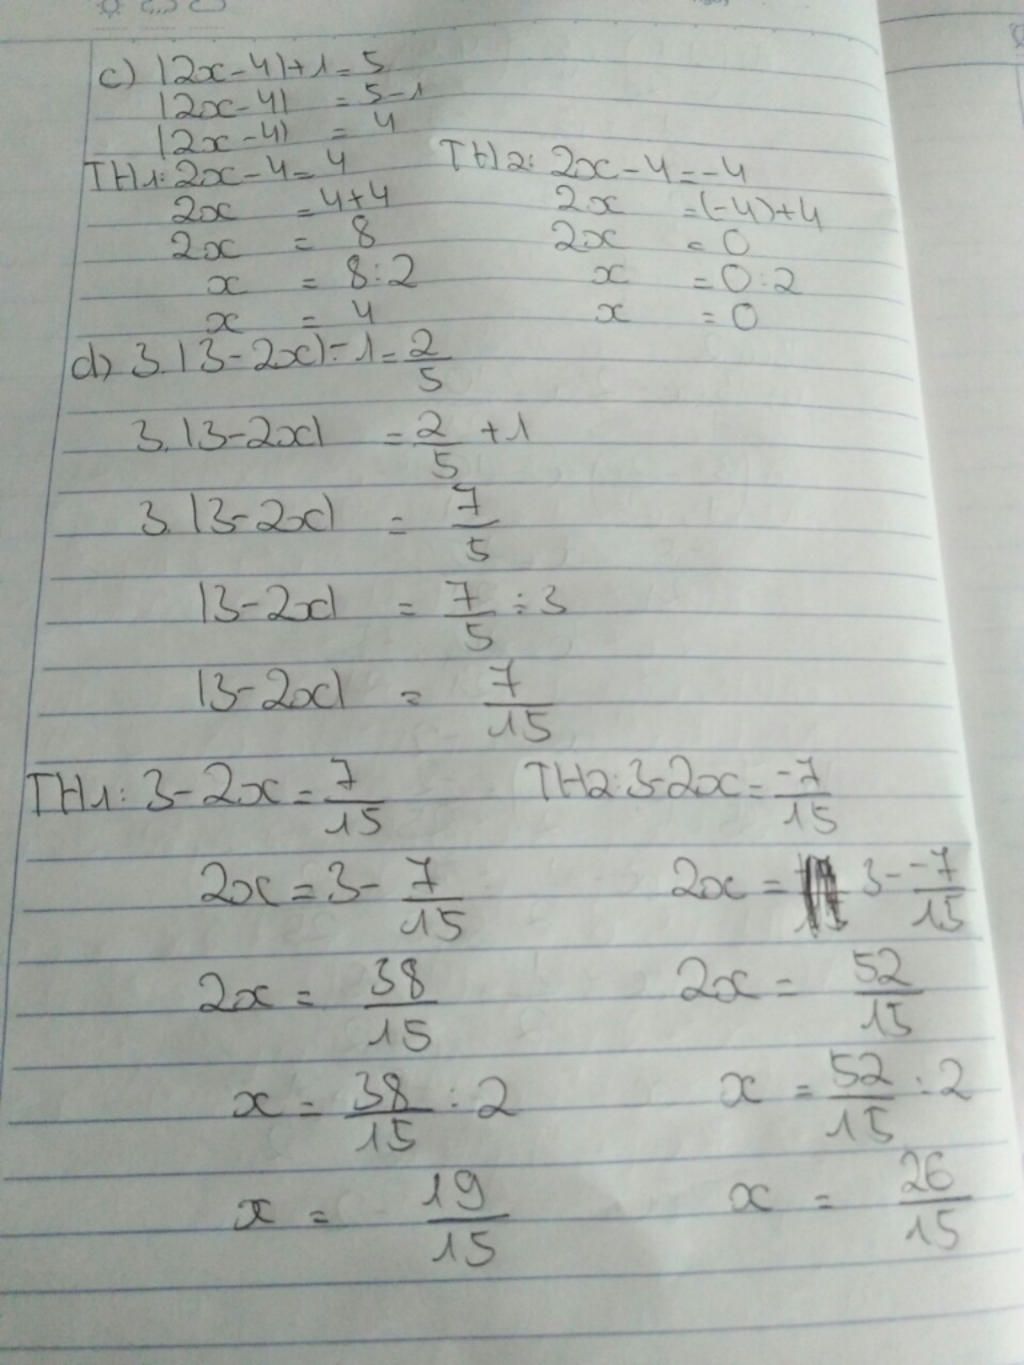 c) |2x-4|+1=5
|2x-4| = 5-1
|2x-4| = 4
TH1: 2x-4=4 TH2: 2x-4=-4
2x =4+4 2x =(-4)+4
2x = 8 2x =0
x = 8:2 x =0:2
x = 4 x =0
d) 3.|3-2x|-1=2/5
3.|3-2x| =2/5 +1
3.|3-2x| = 7/5
|3-2x| = 7/5 :3
|3-2x| = 7/15
TH1: 3-2x=7/15 TH2: 3-2x=-7/15
2x=3-7/15 2x= 3--7/15
2x= 38/15 2x= 52/15
x=38/15 :2 x =52/15 :2
x = 19/15 x = 26/15